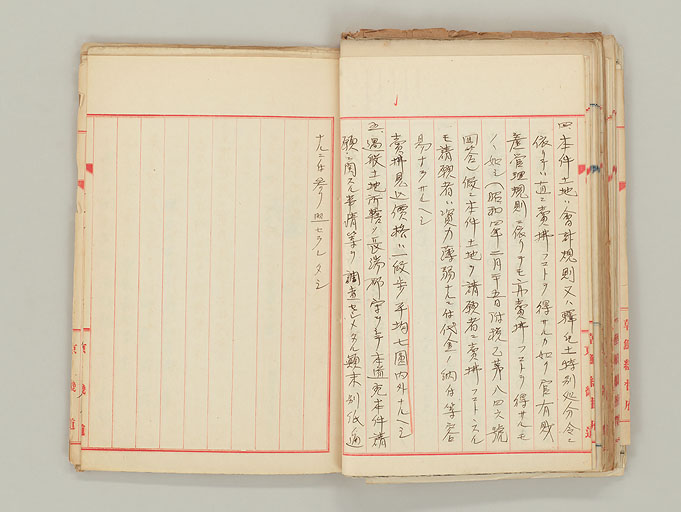 四、本件土地ハ會計規則又ハ驛屯土特別処分令ニ
依リテハ直ニ賣拂フコトヲ得サルカ如ク官有財
産管理規則ニ依リテモ亦賣拂フコトヲ得サルモ
ノノ如シ(昭和四年二月二十五日附税乙第八四六號
回答)仮ニ本件土地ヲ請願者ニ賣拂フコトトスル
モ請願者ハ資力薄弱ナルニ付代金ノ納付等容
易ナラサルヘシ
賣拂見込價格ハ一段步平均七圓内外ナルヘシ
五、遇般土地所轄ノ長湍郡守ヲシテ本道宛本件請
願ニ関スル事情等ヲ調査セシメタル顛末別紙ノ通
ニ付參